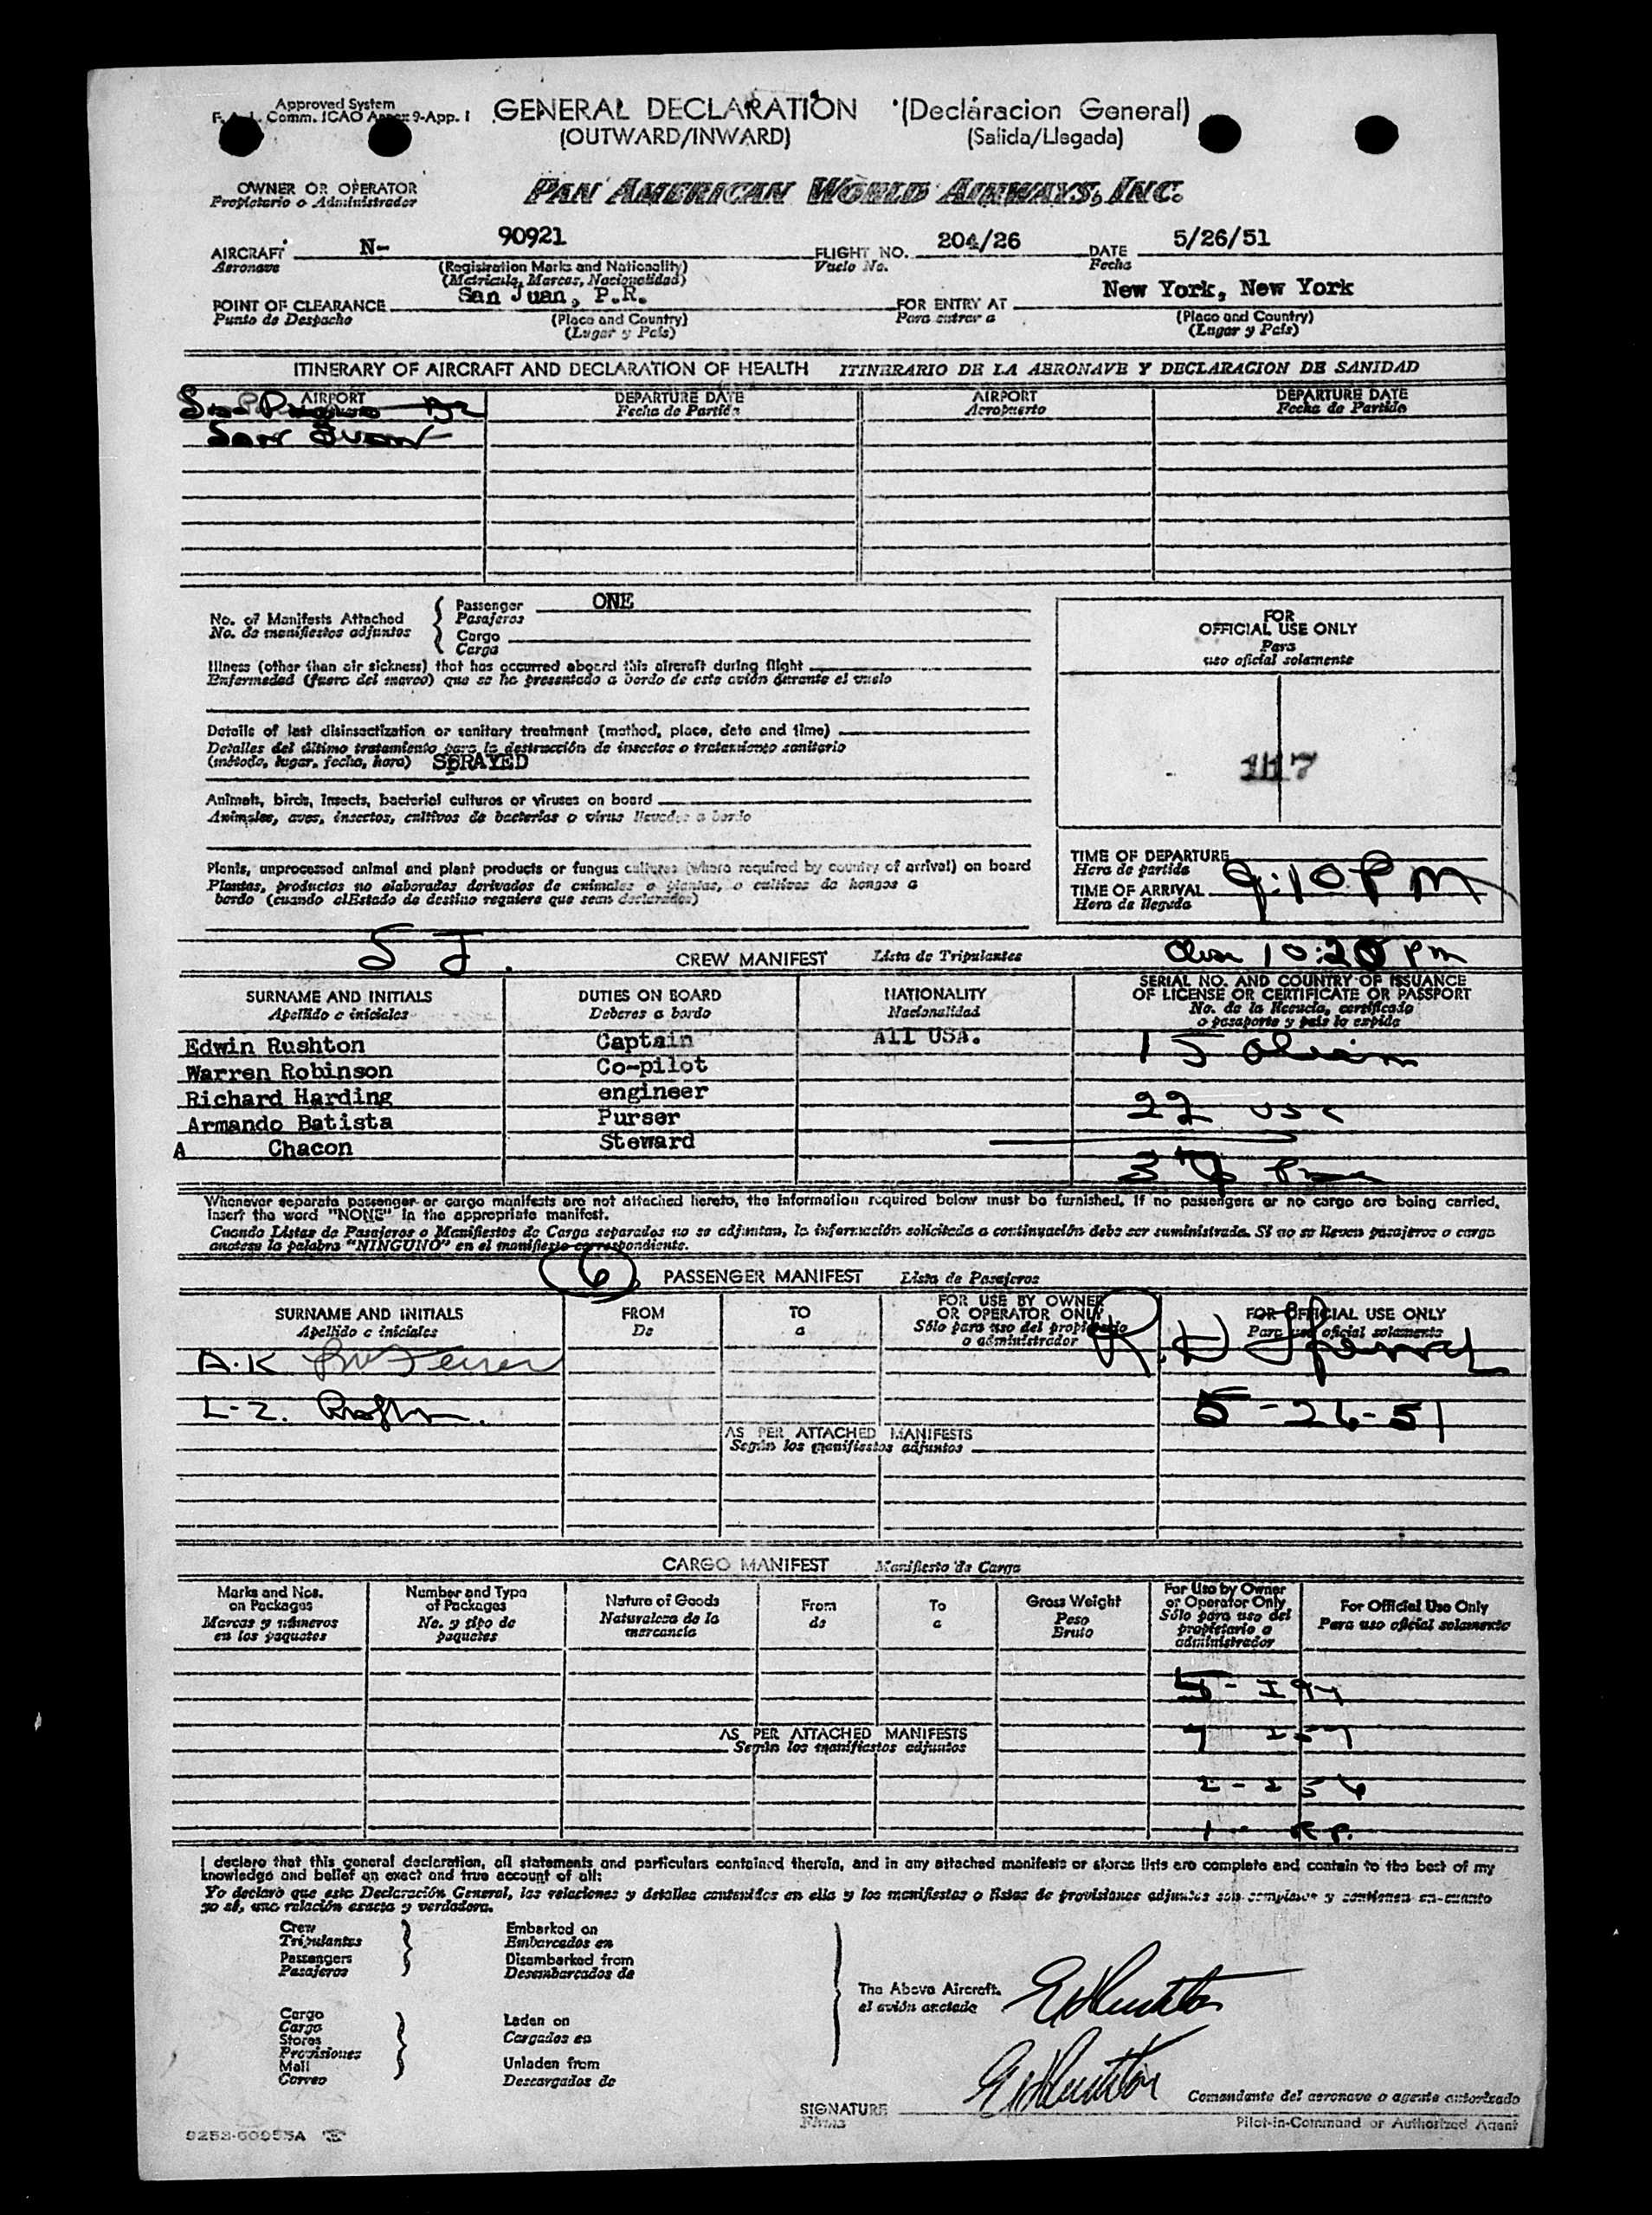 Approved System
F. A. L. Comm. ICAO Annex 9-App. 1
GENERAL DECLARATION (Declaracion General)
(OUTWARD/INWARD) (Salida/Llegada)
OWNER OR OPERATOR
Propietario o Administrador
PAN AMERICAN WORLD AIRWAYS, INC.
AIRCRAFT N- 90921 FLIGHT NO. 204/26 DATE 5/26/51
Aeronave (Registration Marks and Nationality) Vuelo No. Fecha
(Matricula, Marcas, Nacionalidad)
POINT OF CLEARANCE San Juan, P.R. FOR ENTRY AT New York, New York
Punto de Despacho (Place and Country) Para entrar a (Place and Country)
(Lugar y País) (Lugar y País)
ITINERARY OF AIRCRAFT AND DECLARATION OF HEALTH ITINERARIO DE LA AERONAVE Y DECLARACION DE SANIDAD
AIRPORT DEPARTURE DATE AIRPORT DEPARTURE DATE
Fecha de Partida Aeropuerto Fecha de Partida
San Juan
No. of Manifests Attached Passenger ONE
No. de manifiestos adjuntos Pasajeros
Cargo
Carga
FOR
OFFICIAL USE ONLY
Para
uso oficial solamente
Illness (other than air sickness) that has occurred aboard this aircraft during flight
Enfermedad (fuera del mareo) que se ha presentado a bordo de este avión durante el vuelo
Details of last disinsectization or sanitary treatment (method, place, date and time)
Detalles del último tratamiento para la destrucción de insectos o tratamiento sanitario
(método, lugar, fecha, hora) SPRAYED
1117
Animals, birds, insects, bacterial cultures or viruses on board
Animales, aves, insectos, cultivos de bacterias o virus llevados a bordo
Plants, unprocessed animal and plant products or fungus cultures (where required by country of arrival) on board
Plantas, productos no elaborados derivados de animales o plantas, o cultivos de hongos a
bordo (cuando elEstado de destino requiere que sean declarados)
TIME OF DEPARTURE
Hora de partida
TIME OF ARRIVAL 9:10 PM
Hora de llegada
S J.
CREW MANIFEST Lista de Tripulantes 10:20 PM
SURNAME AND INITIALS DUTIES ON BOARD NATIONALITY SERIAL NO. AND COUNTRY OF ISSUANCE
OF LICENSE OR CERTIFICATE OR PASSPORT
Apellido e iniciales Deberes a bordo Nacionalidad No. de la licencia, certificado
o pasaporte y país lo expide
Edwin Rushton Captain All USA. 15
Warren Robinson Co-pilot
Richard Harding engineer 22 USC
Armando Batista Purser
A Chacon Steward
Whenever separate passenger or cargo manifests are not attached hereto, the information required below must be furnished. If no passengers or no cargo are being carried,
insert the word "NONE" in the appropriate manifest.
Cuando Listas de Pasajeros o Manifiestos de Carga separados no se adjuntan, la información solicitada a continuación debe ser suministrada. Si no se lleven pasajeros o carga
anotese la palabra "NINGUNO" en el manifiesto correspondiente.
6 PASSENGER MANIFEST Lista de Pasajeros
SURNAME AND INITIALS FROM TO FOR USE BY OWNER
OR OPERATOR ONLY FOR OFFICIAL USE ONLY
Apellido e iniciales De a Sólo para uso del propietario
o administrador Para uso oficial solamente
A.K. R. H.
L-2. 5-26-51
AS PER ATTACHED MANIFESTS
Según los manifiestos adjuntos
CARGO MANIFEST Manifiesto de Carga
Marks and Nos.
on Packages
Marcas y números
en los paquetes
Number and Type
of Packages
No. y tipo de
paquetes
Nature of Goods
Naturaleza de la
mercancía
From
de
To
a
Gross Weight
Peso
Bruto
For Use by Owner
or Operator Only
Sólo para uso del
propietario o
administrador
For Official Use Only
Para uso oficial solamente
AS PER ATTACHED MANIFESTS
Según los manifiestos adjuntos
1 - R.P.
I declare that this general declaration, all statements and particulars contained therein, and in any attached manifests or stores lists are complete and contain to the best of my
knowledge and belief an exact and true account of all:
Yo declaro que esta Declaración General, las relaciones y detalles contenidos en ella y los manifiestos o listas de provisiones adjuntos son completos y contienen en-cuanto
yo sé, una relación exacta y verdadera.
Crew Embarked on
Tripulantes Embarcados en
Passengers Disembarked from
Pasajeros Desembarcados de
The Above Aircraft.
el avión anotado
Cargo
Carga Laden on
Stores Cargados en
Provisiones
Mail Unladen from
Correo Descargados de
SIGNATURE
Firma
Comandante del aeronave o agente autorizado
Pilot-in-Command or Authorized Agent
9253-60955A